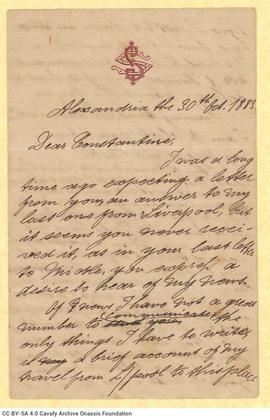 Alexandria the 30th Oct. 1883.
Dear Constantine,
I was a long
time ago expecting a letter
from you, an answer to my
last one from Liverpool, but
it seems you never recei-
ved it, as in your last letter
to Mike, you express a
desire to hear of my news.
Of news, I have not a great
number to communicate the
only things I have to write
is a brief account of my
travel from L'pool to this place
CC BY-SA 4.0 Cavafy Archive Onassis Foundation